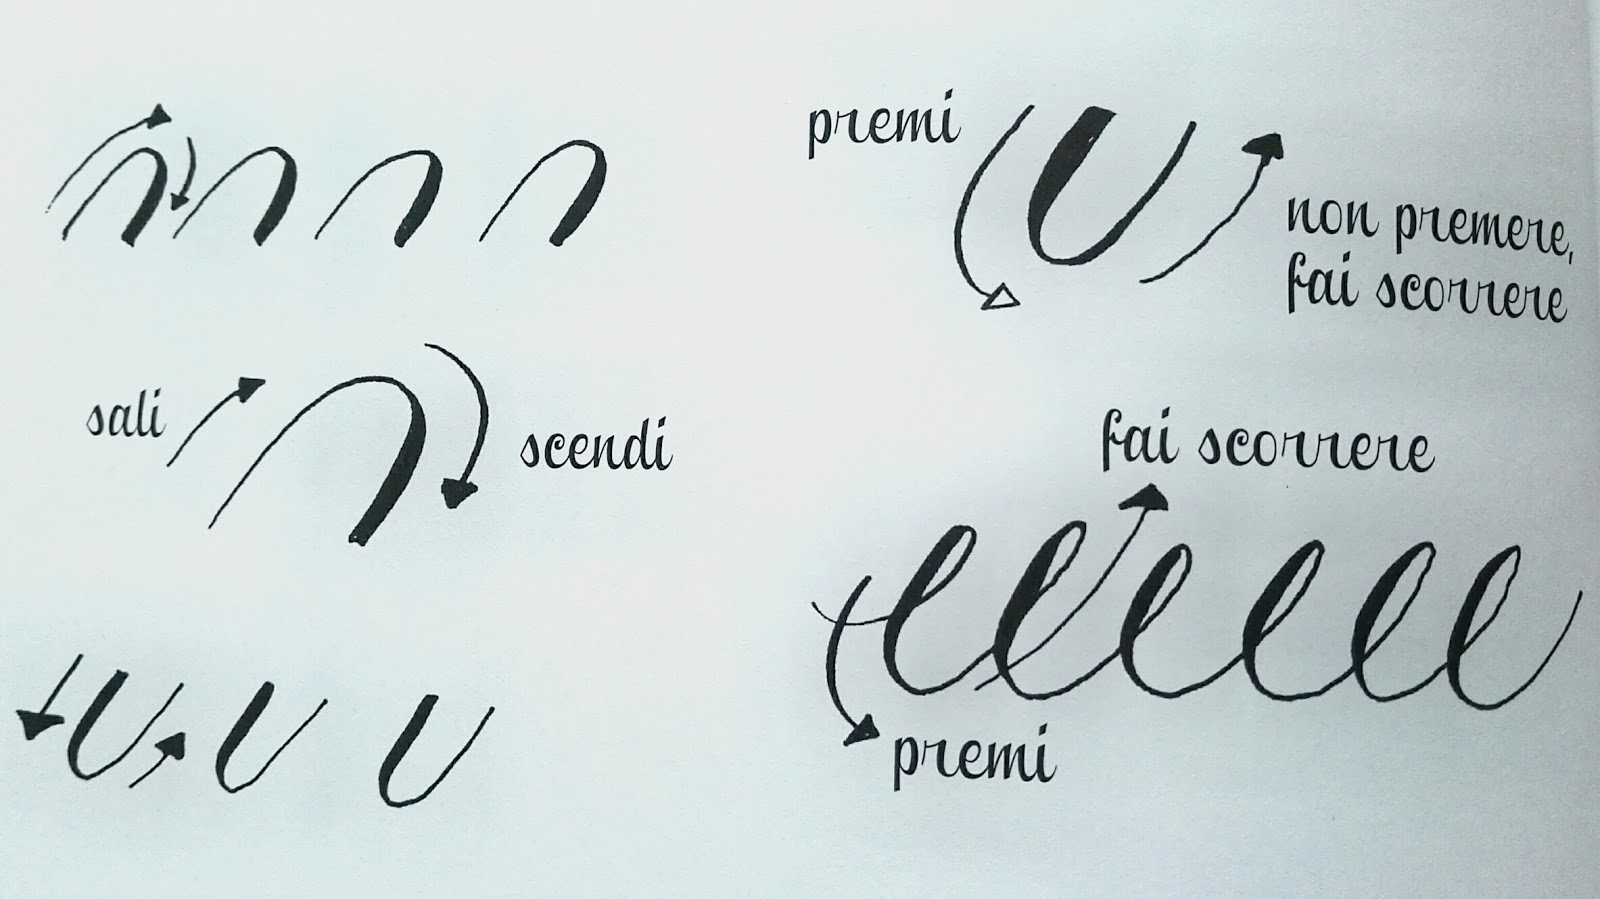 premi
non premere,
fai scorrere
sali
scendi
fai scorrere
premi